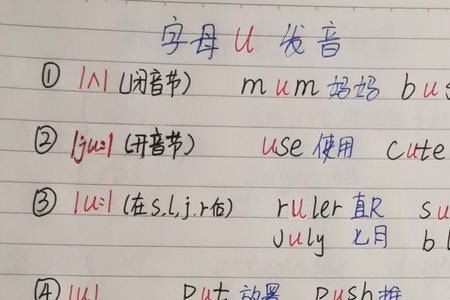 字母 u 发音
① /ʌ/ (闭音节) mum 妈妈 bus
② /ju:/ (开音节) use 使用 cute
③ /u:/ (在s,l,j,r后) ruler 直尺 su
July 七月 bl
④ /u/ put 放置 push 推